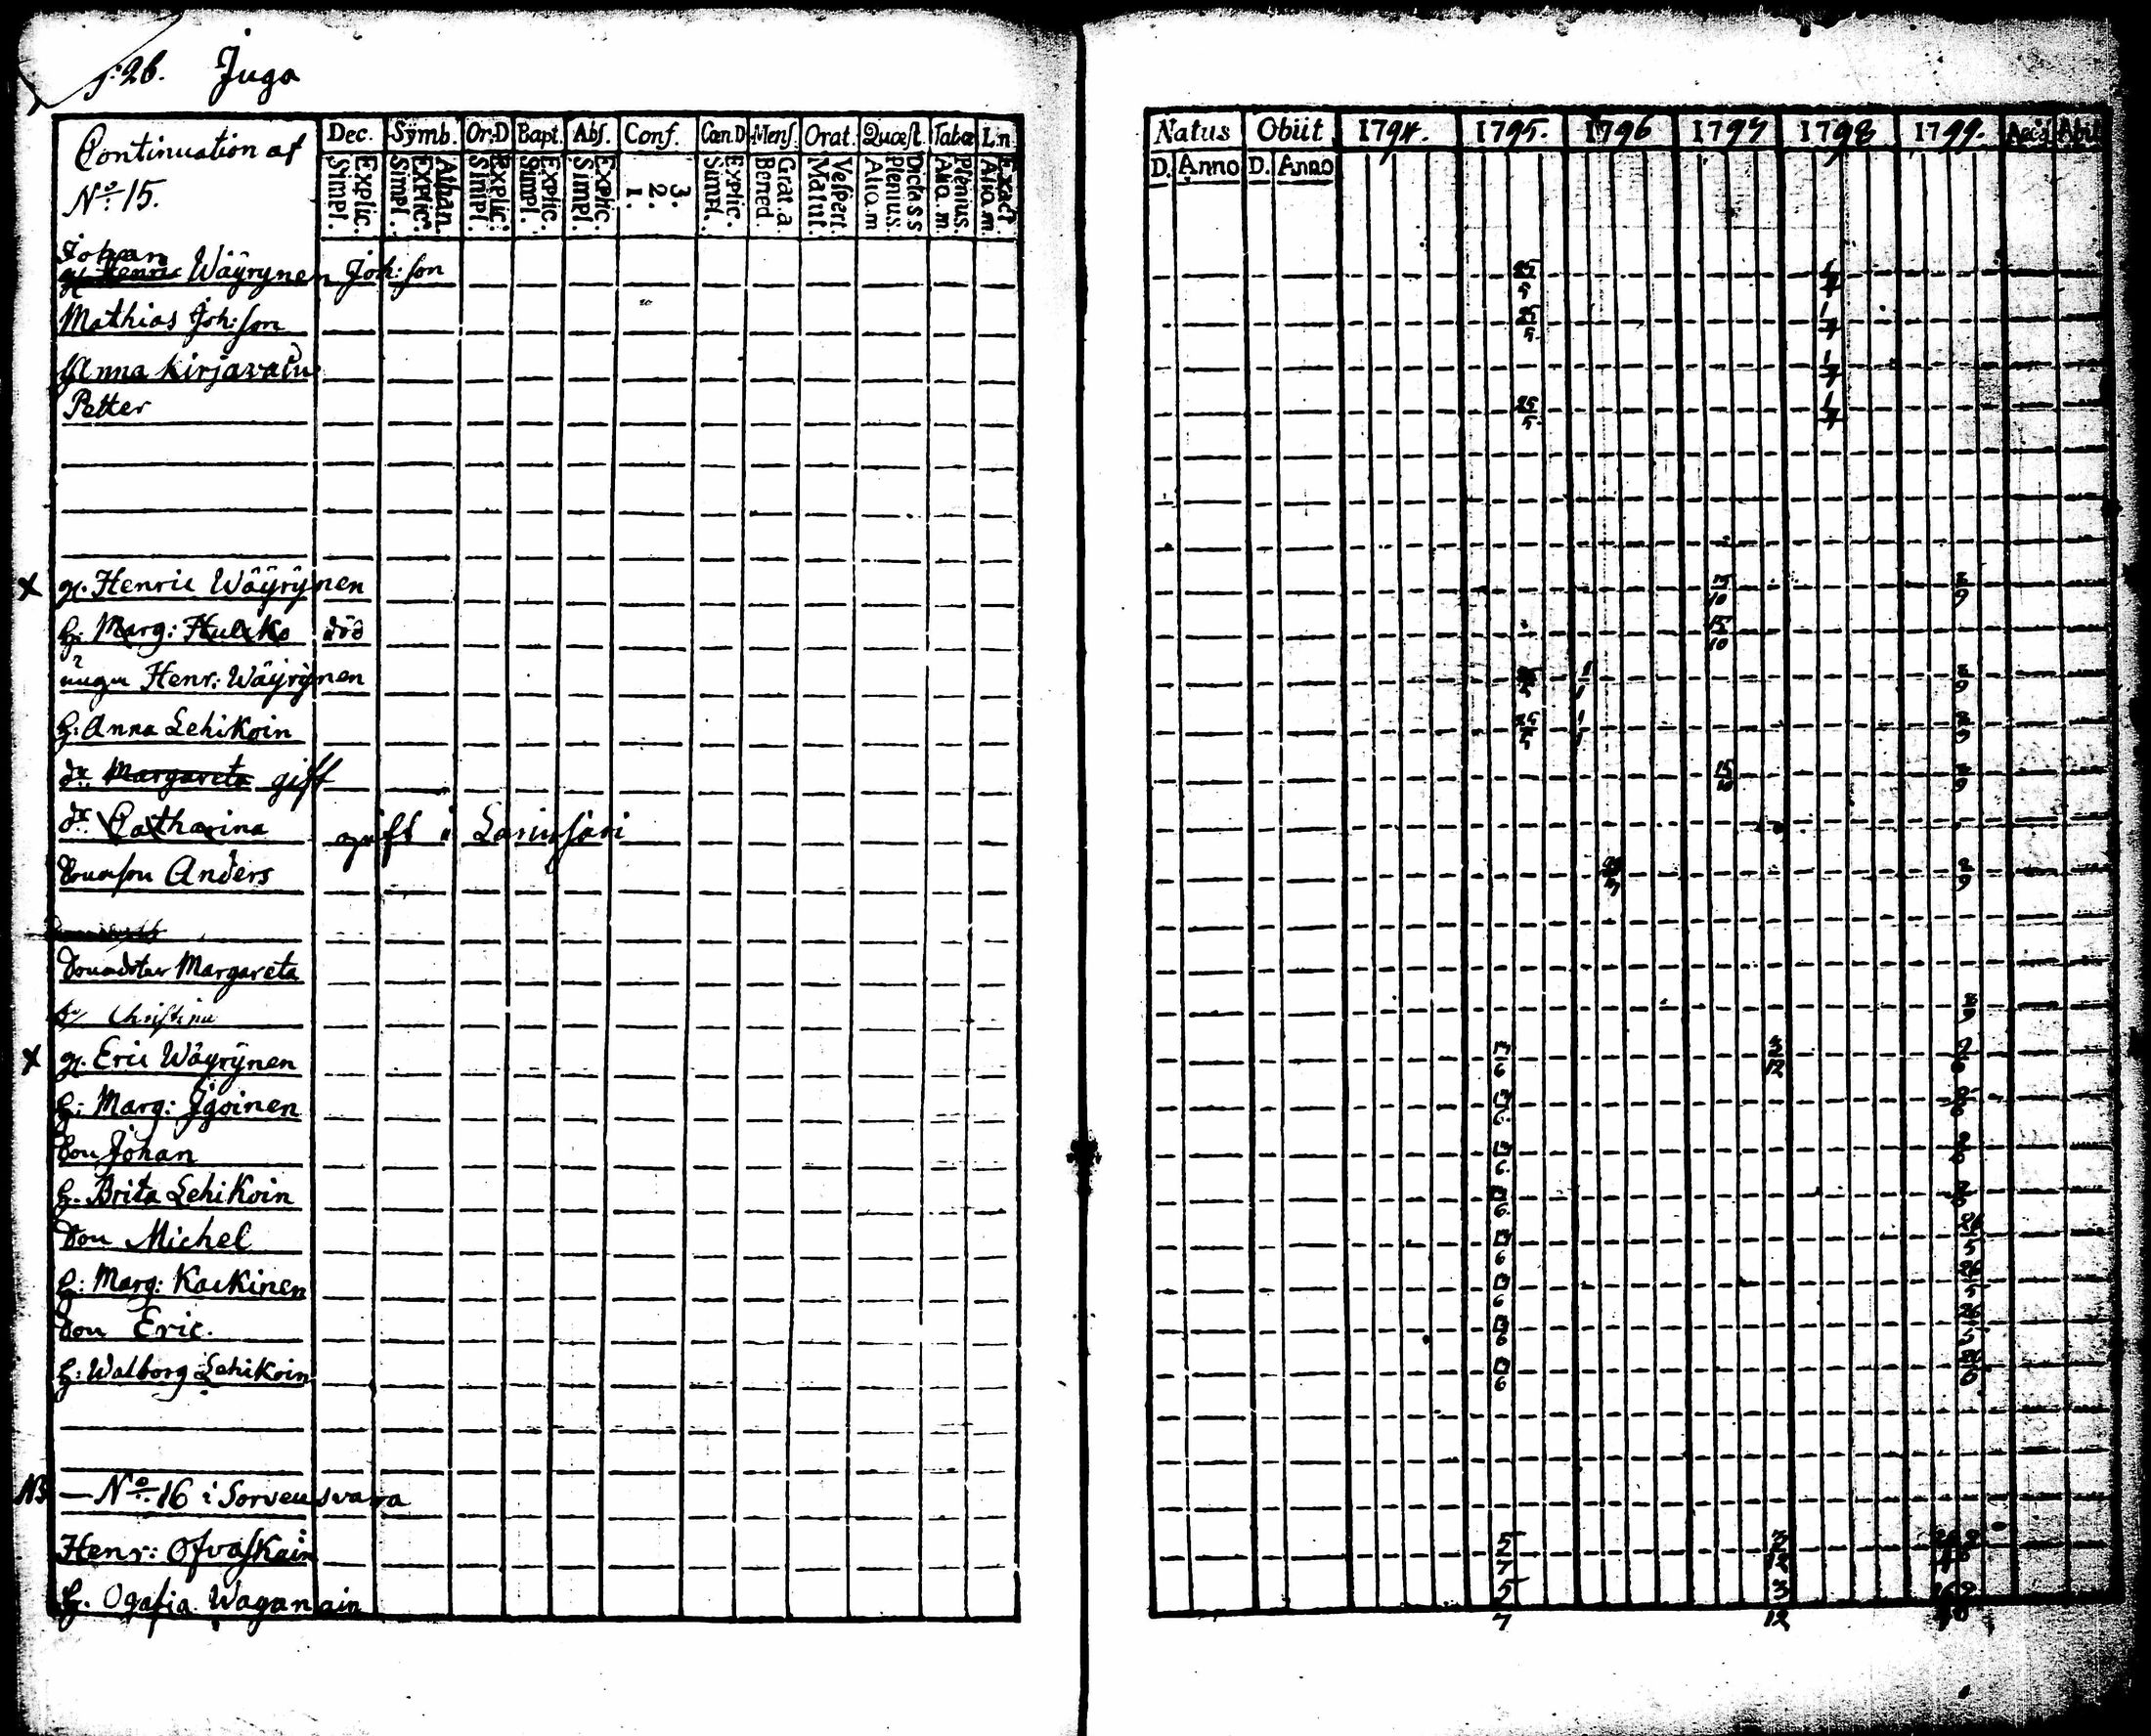 p: 26. Juga
Continuation af
No: 15.
Dec. Symb. Or.D Bapt. Abs. Conf. Cœn.D Mens. Orat. Quæst. Tabœ L.n
Simpl. Explic. Simpl. Explic. Athan. Simpl. Explic. Simpl. Explic. Simpl. Explic. 1. 2. 3. Simpl. Explic. Bened. Grat.a Matut. Vespert. Aliam Plenius. Dictass Aliam. Plenius. Aliam. Exact
Natus Obiit 1794. 1795. 1796 1797 1798 1799. Acc. Abit
D. Anno D. Anno
Johan
Henric Wäyrynen Joh: son 25/5 1/7
Mathias Joh: son 25/5 1/7
Anna Kirjavain 1/7
Petter 25/5 1/7
x gl. Henric Wäyrynen 15/10 2/9
h: Marg: Hulkko död 15/10
unga Henr: Wäyrynen 25/5 1/1 2/9
h: Anna Lehikoin 25/5 1/1 2/9
dr. Margareta gift 15/10 2/9
dr. Catharina gift i
Sonason Anders 2/9
Sonadoter Margareta
Christina 2/9
x gl. Eric Wäyrynen 17/6 3/12 2/6
h: Marg: Igoinen 17/6
Son Johan 17/6
h. Brita Lehikoin 17/6
Son Michel 17/6 26/5
h: Marg: Kackinen 17/6 26/5
Son Eric. 17/6 26/5
h: Walborg Lehikoin 17/6
NB — No: 16 i Sorvensvara
Henr: Ofvaskain 5/7 3/12
h. Ogafia Waganain 5/7 3/12